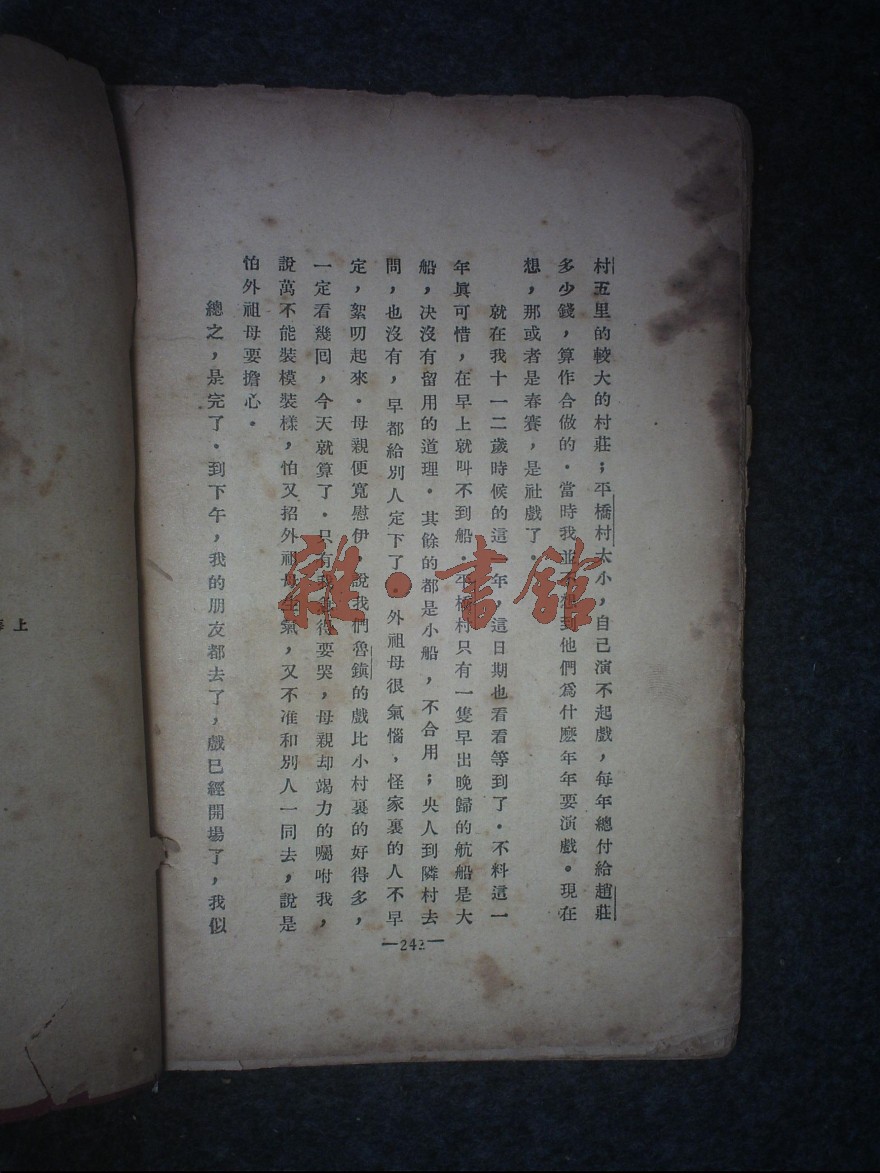 村五里的較大的村莊；平橋村太小，自己演不起戲，每年總付給趙莊
多少錢，算作合做的．當時我並不想到他們爲什麼年年要演戲。現在
想，那或者是春賽，是社戲了．
就在我十一二歲時候的這一年，這日期也看看等到了．不料這一
年眞可惜，在早上就叫不到船．平橋村只有一隻早出晚歸的航船是大
船，決沒有留用的道理．其餘的都是小船，不合用；央人到隣村去
問，也沒有，早都給別人定下了．外祖母很氣惱，怪家裏的人不早
定，絮叨起來．母親便寬慰伊，說我們魯鎭的戲比小村裏的好得多，
一定看幾囘，今天就算了．只有我急得要哭，母親却竭力的囑咐我，
說萬不能裝模裝樣，怕又招外祖母生氣，又不准和別人一同去，說是
怕外祖母要擔心．
總之，是完了．到下午，我的朋友都去了，戲已經開場了，我似
—242—
雜·書館
上